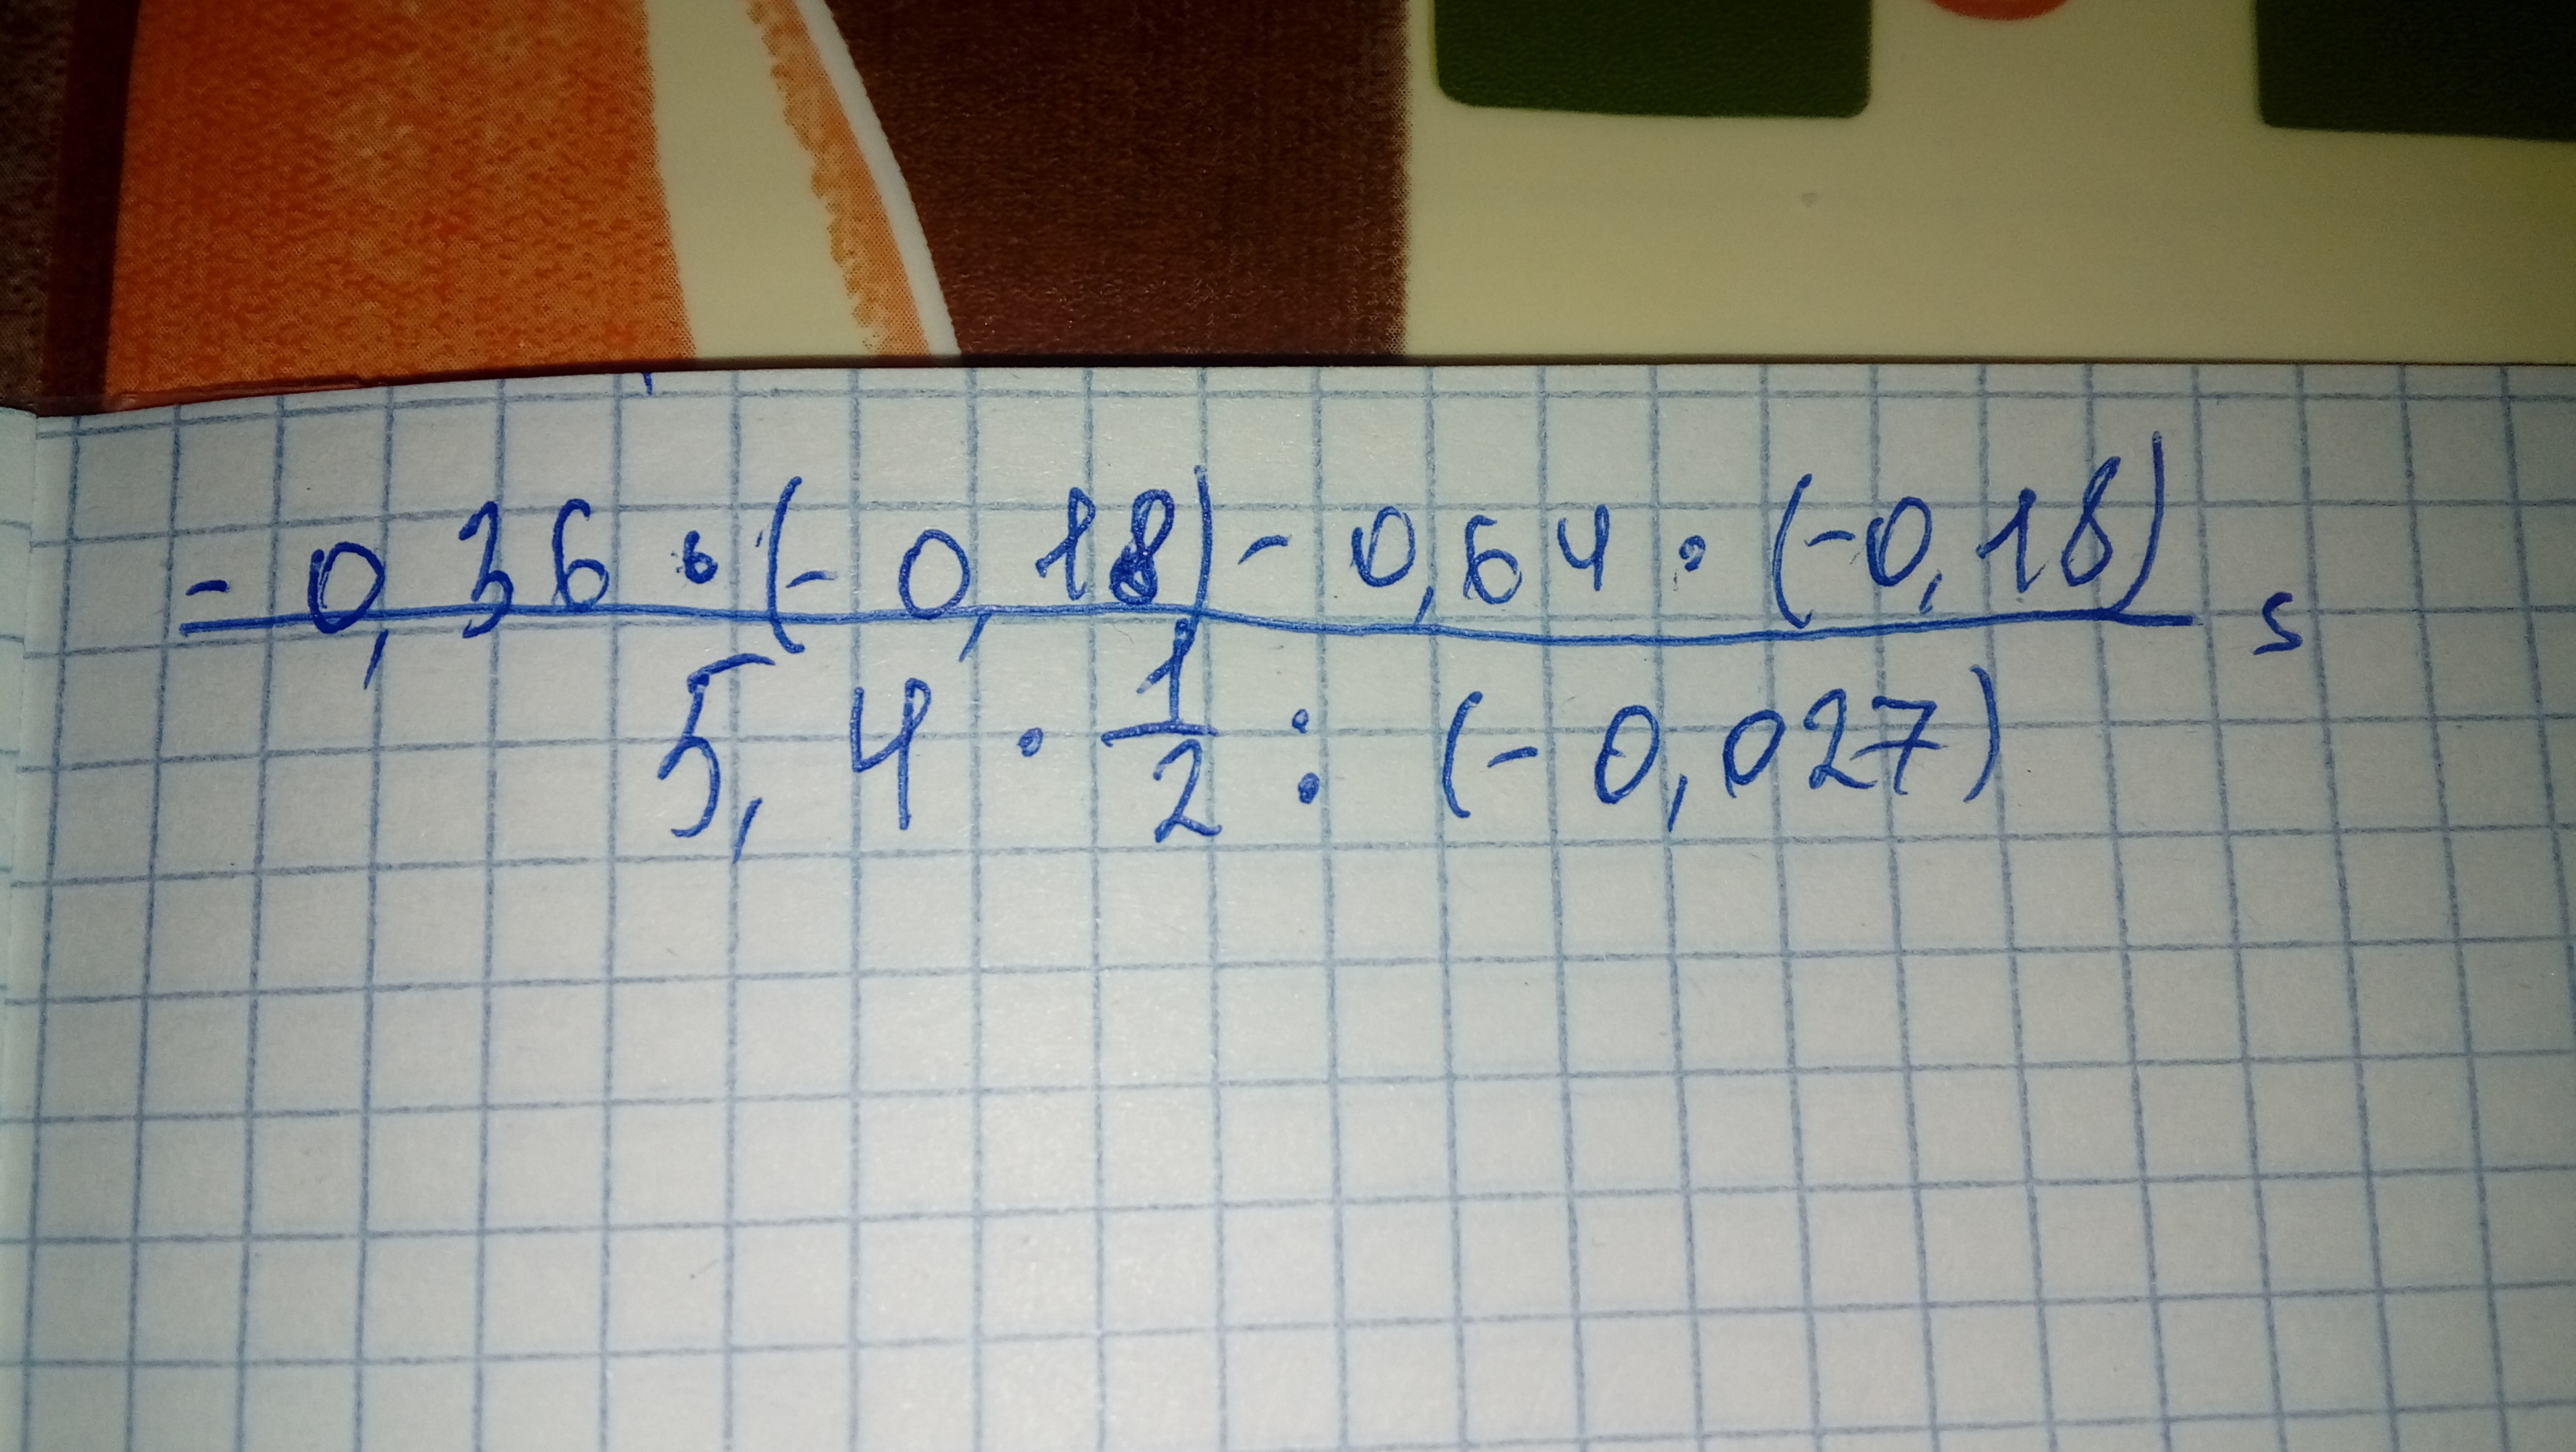 - 0,36 · (- 0,18) - 0,64 · (-0,18) s
5, 4 · 1/2 : (- 0,027)